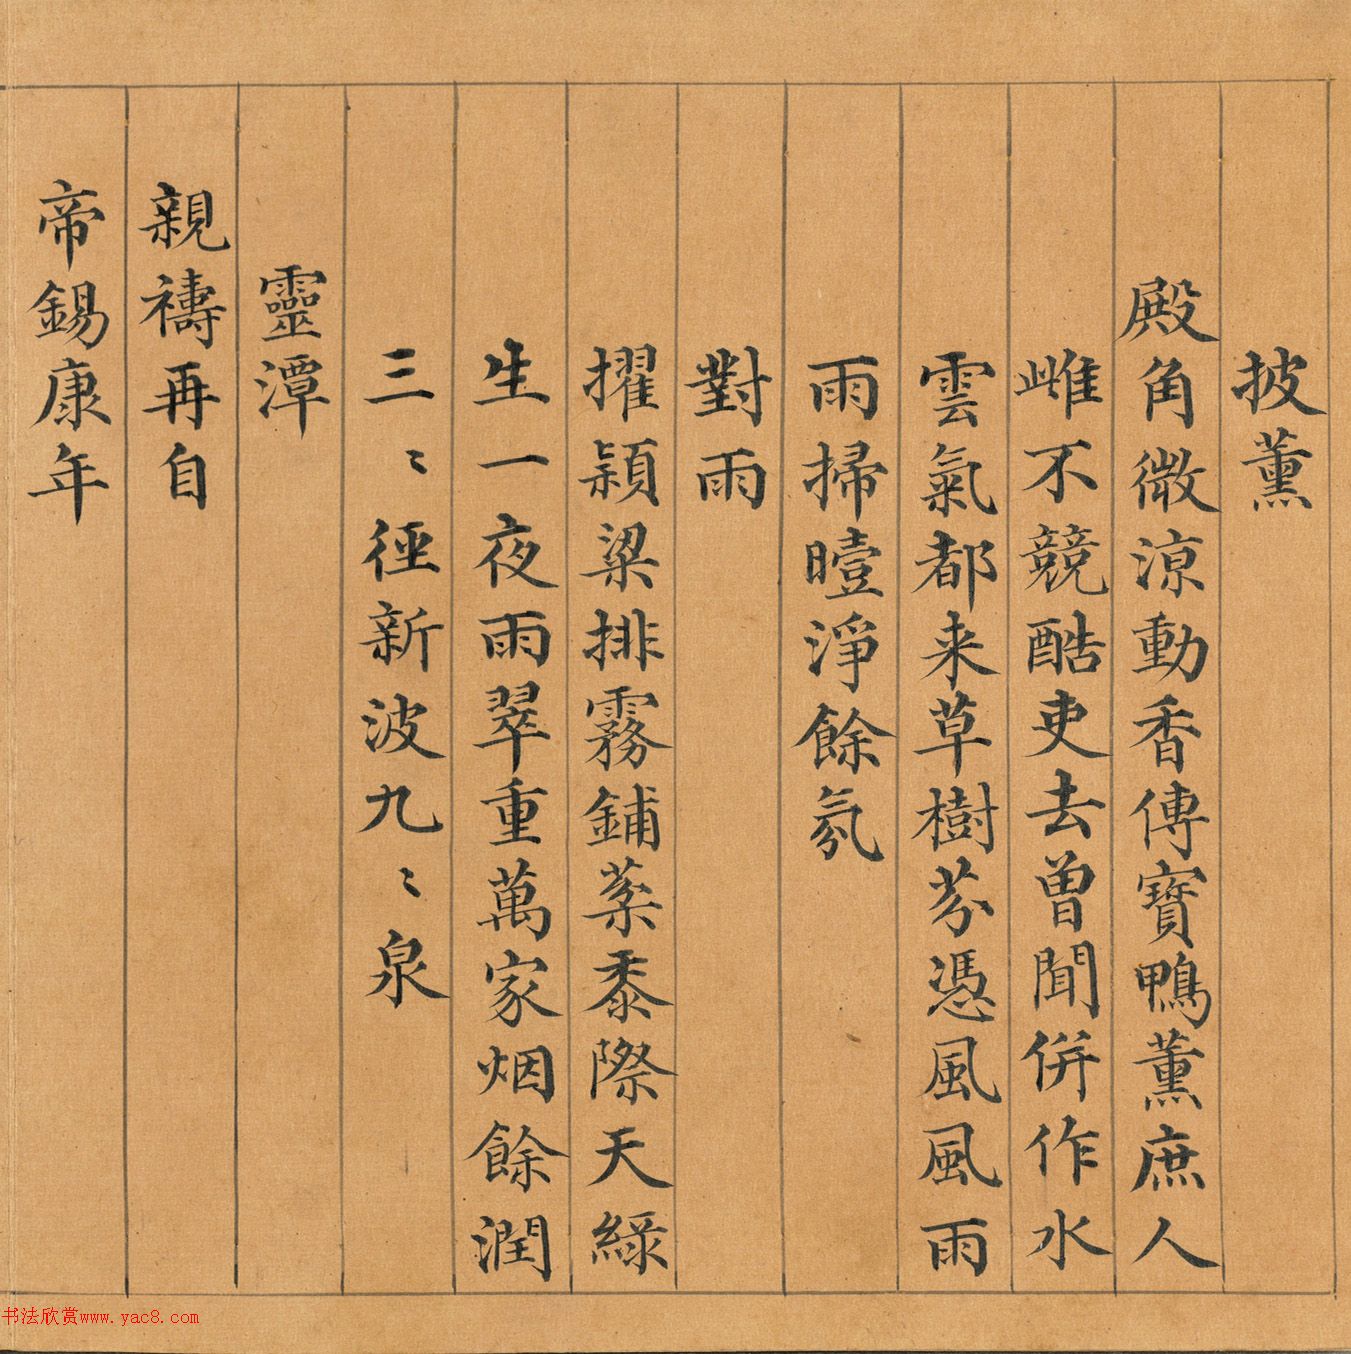 披薰
殿角微涼動香傳寶鴨薰庶人
雌不競酷吏去曾聞併作水
雲氣都来草樹芬憑風風雨
雨掃曀淨餘氛
對雨
擢穎粱排霧鋪蕠黍際天緑
生一夜雨翠重萬家烟餘潤
三〻徑新波九〻泉
靈潭
親禱再自
帝錫康年
书法欣赏www.yac8.com